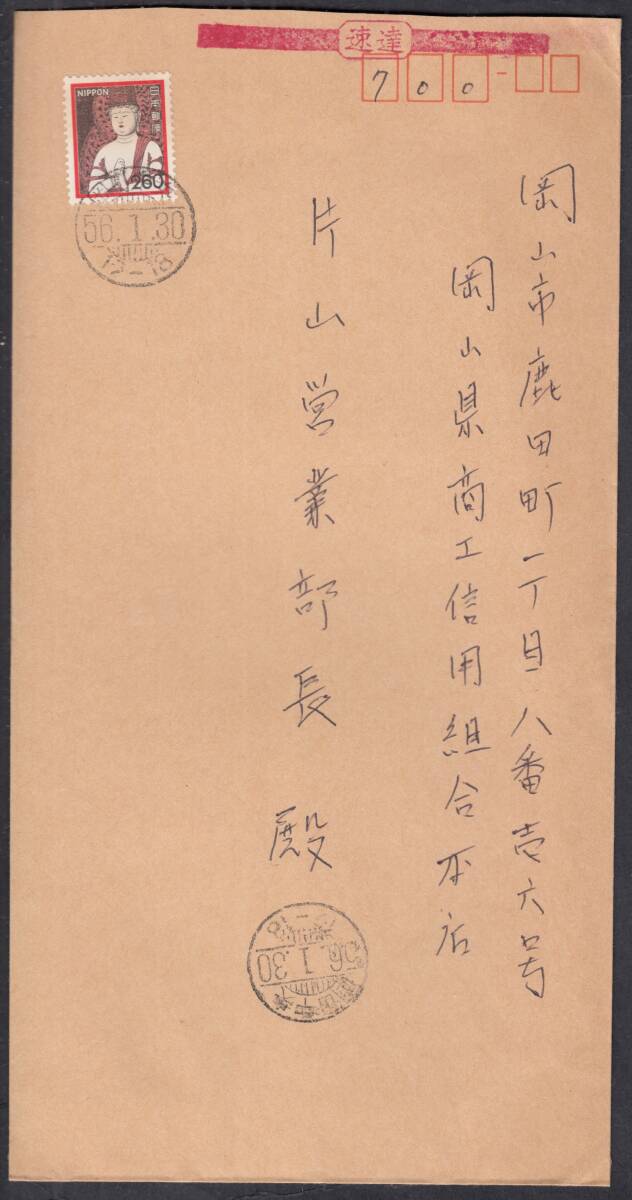 速達
700
NIPPON
日本郵便
260
56.1.30
岡山市鹿田町一丁目八番壱六号
岡山県商工信用組合本店
片山営業部長 殿
56.1.30